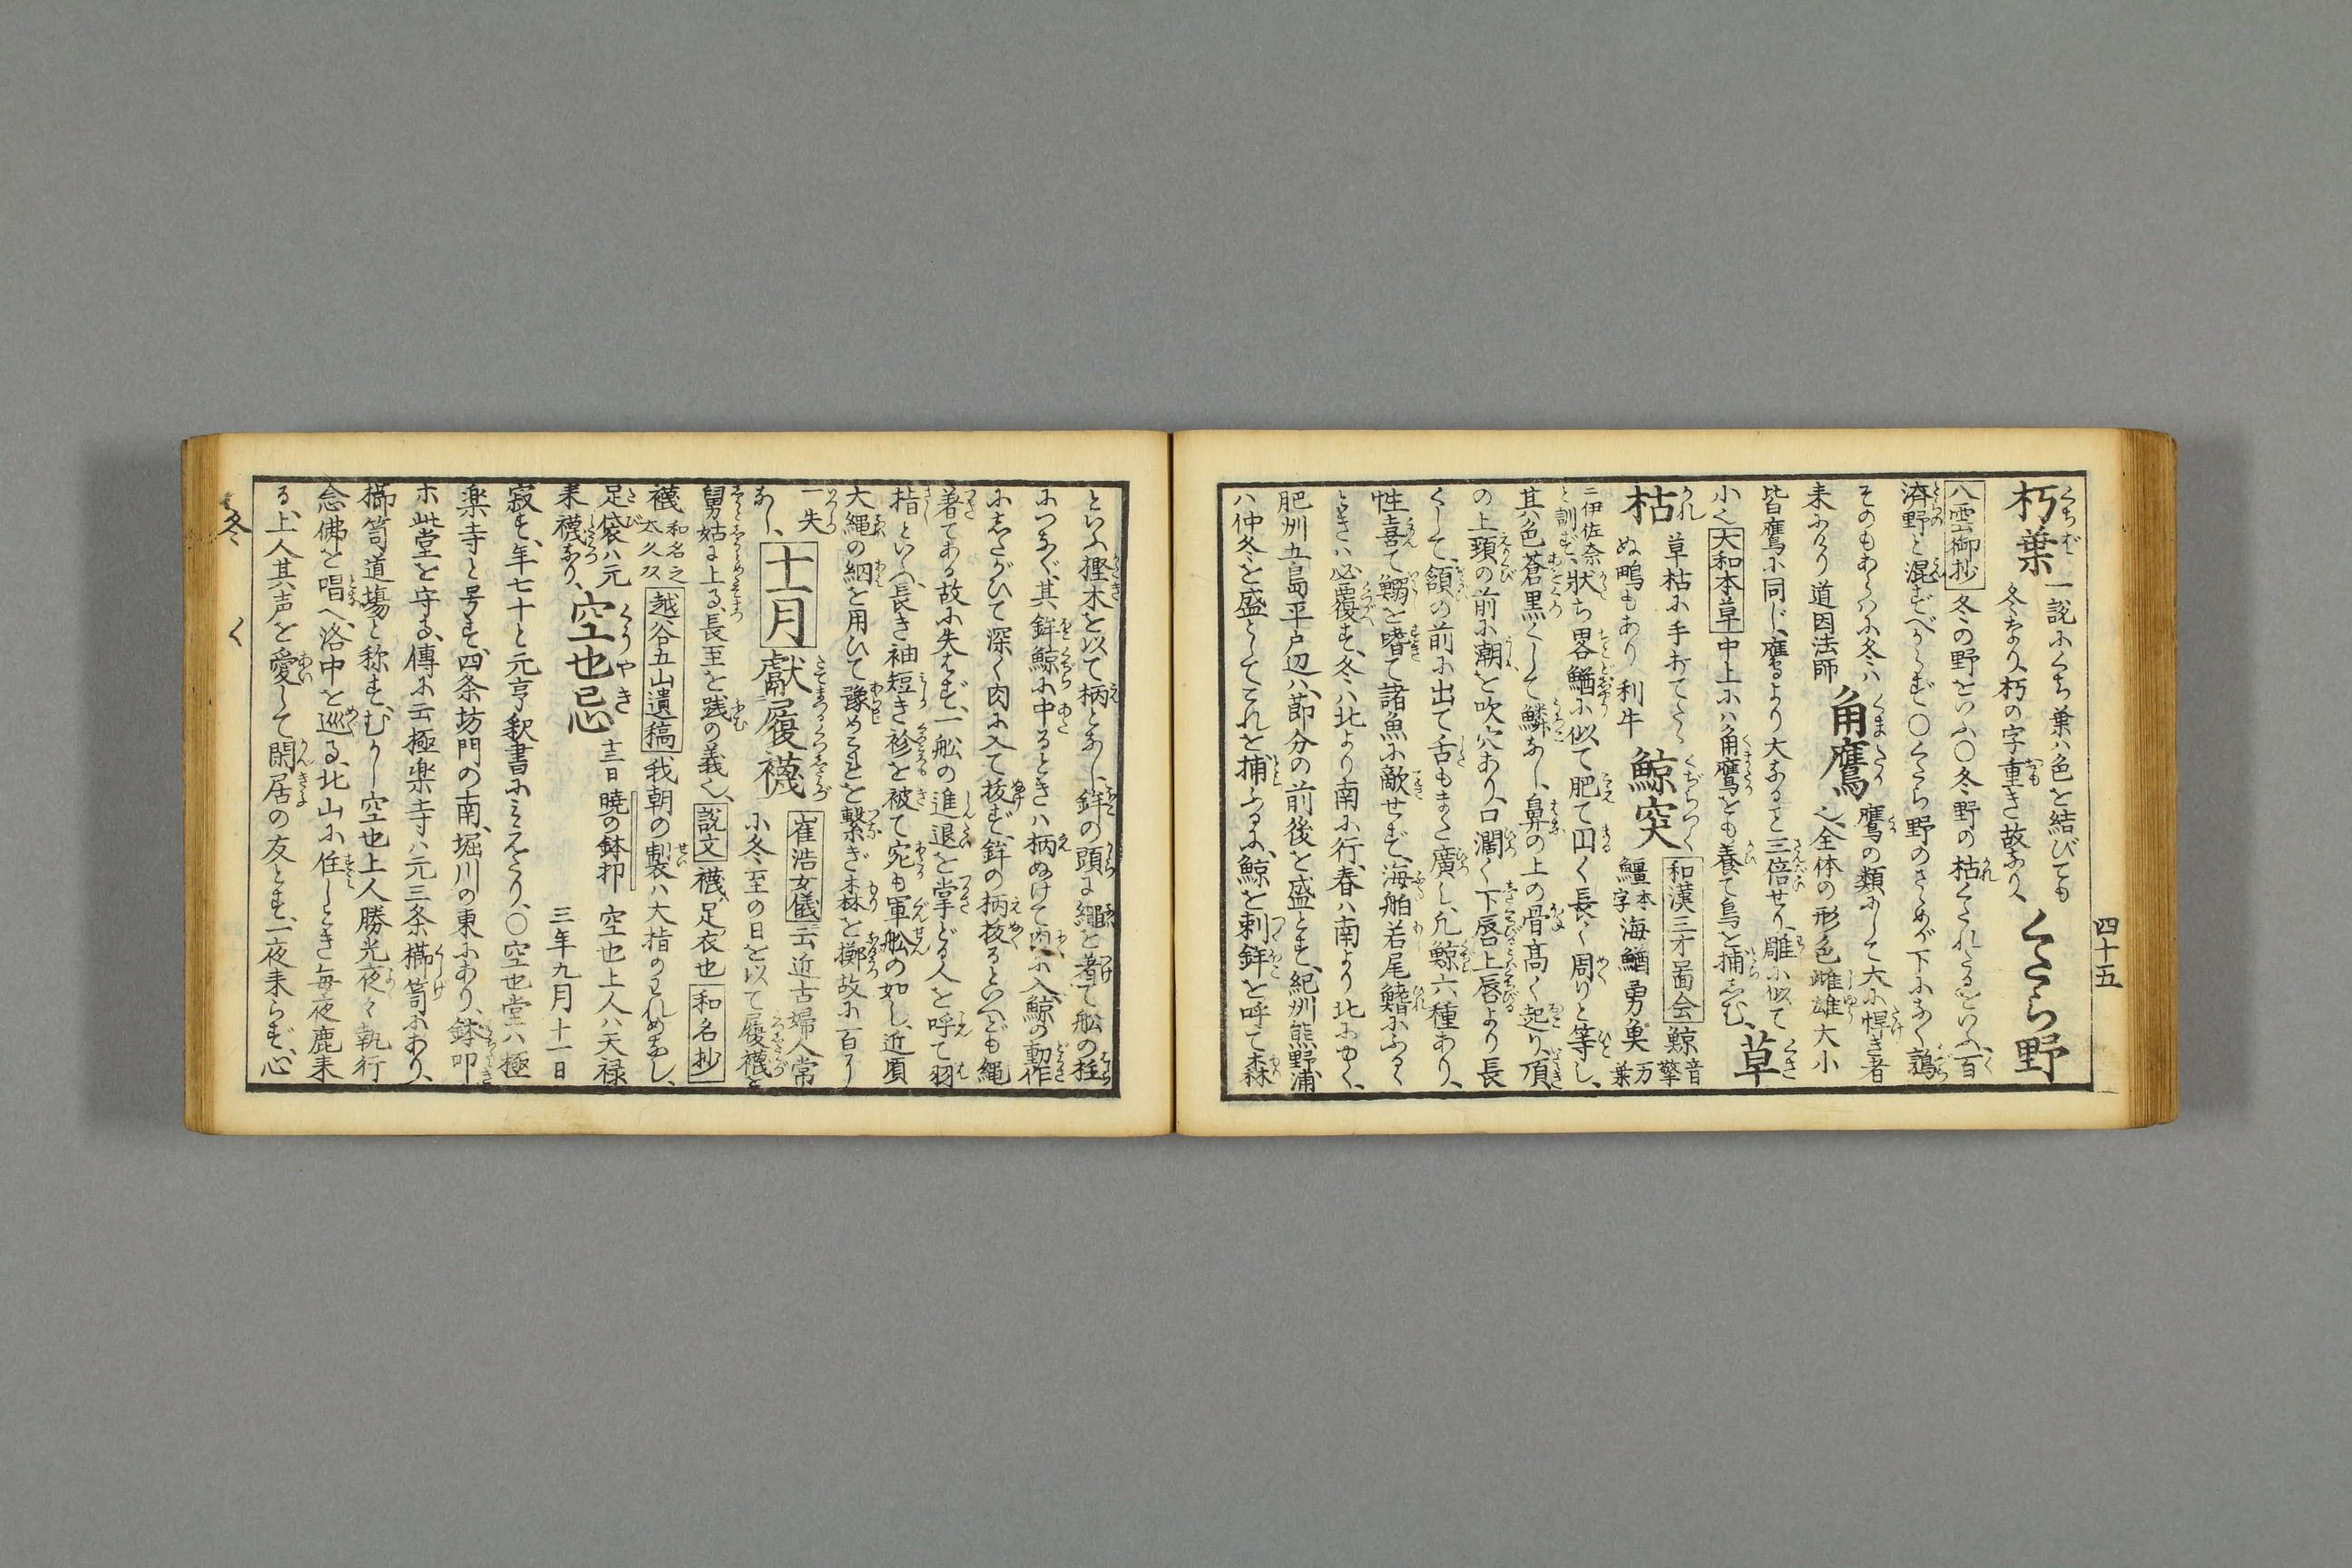 四十五
朽葉 一説にくち葉ハ色を結びても
冬なり、朽の字重き故なり、 くだら野
八雲御抄 冬の野をいふ○冬野の枯くたれたるをいふ、百
済野と混ずべからず○くだら野のさらめが下になく鶉
そのもあらハに冬ハ
来にけり 道因法師 角鷹 鷹の類にして大に悍き者
也、全体の形色雌雄大小
皆鷹に同じ、鷹より大なること三倍せり、雕に似て
小也 大和本草 中上にハ角鷹をも養て鳥を捕しむ、 草
枯 草枯に手打てたゝ
ぬ鴫もあり 利牛 鯨突 和漢三才啚会 鯨 音擎 万葉
鱷 本字 海鰌 勇魚
ニ伊佐奈
と訓ず、状ち畧鰌に似て肥て円く長く周りと等し、
其ハ色蒼黒くして鱗なし、鼻の上の骨高く起り、頂
の上頸の前に潮を吹穴あり、口濶く下唇上唇より長
くして、頷の前に出て舌もまた廣し、凢鯨六種あり、
性喜て鰯を嗜て諸魚に敵せず、海舶若尾鰭にふるく
ときハ必覆す、冬ハ北より南に行、春ハ南より北にゆく、
肥州五島平戸辺ハ、節分の前後を盛とす、紀州熊野浦
ハ仲冬を盛としてこれを捕ふるに、鯨を刺鉾を呼て森
といふ樫木を以て柄となし、鉾の頭に縄を著て舩の柱
につなぐ、其鉾鯨に中るときハ柄ぬけて肉に入、鯨の動作
にしたがひて深く肉に入て抜ず、鉾の柄抜るといへども縄
著てある故に失はず、一舩の進退を掌どる人を呼て羽
指といへ、長き袖短き袗を被て宛も軍舩の如し、近頃
大縄の綱を用ひて豫め是を繫ぎ森を擲故に百に
一失
なし、 十一月 獻履襪 崔浩女儀云近古婦人常
に冬至の日を以て履襪を
舅姑に上る、長至を践の義也、 説文 襪、足衣也 和名抄
襪 和名之太久豆 越谷五山遺稿 我朝の製ハ大指のわれめなし、
足袋ハ元
来襪なり、 空也忌 十三日 暁の鉢叩 空也上人ハ天禄
三年九月十一日
寂す、年七十と元亨釈書にミえたり、○空也堂ハ極
楽寺と号す、四条坊門の南、堀川の東にあり、鉢叩
ホ此堂を守る、傳に云極楽寺ハ元三条櫛笥にあり、
櫛笥道場と称す、むかし空也上人勝光夜々執行
念佛を唱へ、洛中を巡る、北山に住しとき毎夜鹿来
る、上人其声を愛して閑居の友とす、一夜来らず、心
冬 く